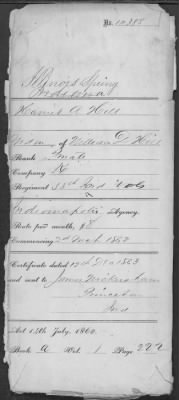 No. 10388
Indiana
Harriet A Hill
Widow of William D Hill
Rank Private
Company K
Regiment 33d Ind Vols
Indianapolis Agency.
Rate per month, $8
Commencing 2d Mch 1863
Certificate dated 12th Dec 1863
and sent to James
Princeton
Ind
Act 14th July, 1862.
Book A Vol. 1 Page 222